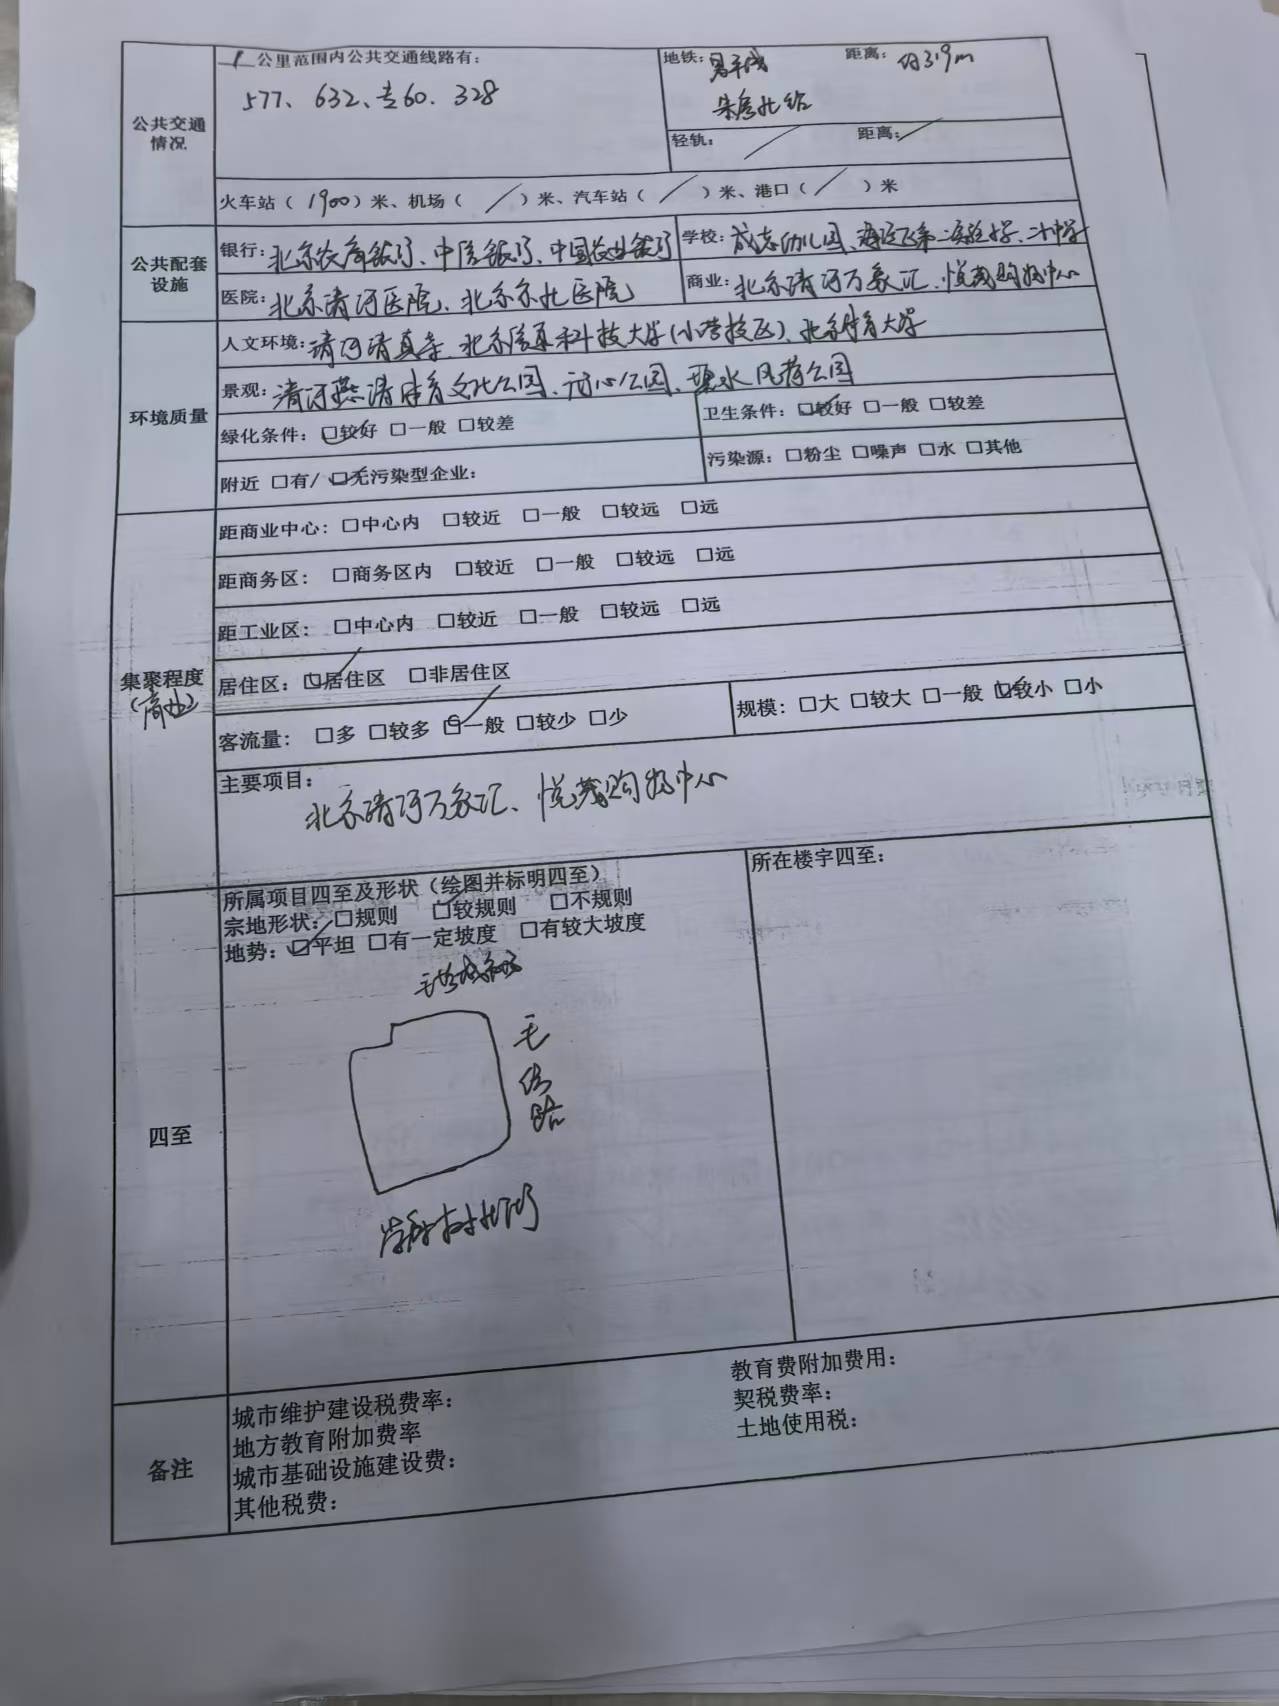 1 公里范围内公共交通线路有:
577、632、专60、328
地铁: 昌平线 距离: 约319m
朱房北站
公共交通情况
轻轨: / 距离: /
火车站（1900）米、机场（ / ）米、汽车站（ / ）米、港口（ / ）米
公共配套设施
银行: 北京农商银行、中信银行、中国农业银行
学校: 成志幼儿园、海淀区第二实验小学、二十中学
医院: 北京清河医院、北京京北医院
商业: 北京清河万象汇、悦茂购物中心
环境质量
人文环境: 清河清真寺、北京信息科技大学(小营校区)、北京体育大学
景观: 清河燕清体育文化公园、碧水风荷公园
绿化条件: ☑较好 □一般 □较差
卫生条件: ☑较好 □一般 □较差
附近 □有/ ☑无污染型企业:
污染源: □粉尘 □噪声 □水 □其他
集聚程度
(商业)
距商业中心: □中心内 □较近 □一般 □较远 □远
距商务区: □商务区内 □较近 □一般 □较远 □远
距工业区: □中心内 □较近 □一般 □较远 □远
居住区: ☑居住区 □非居住区
客流量: □多 □较多 ☑一般 □较少 □少
规模: □大 □较大 □一般 ☑较小 □小
主要项目:
北京清河万象汇、悦茂购物中心
四至
所属项目四至及形状（绘图并标明四至）
宗地形状: □规则 ☑较规则 □不规则
地势: ☑平坦 □有一定坡度 □有较大坡度
毛纺路
所在楼宇四至:
备注
城市维护建设税费率:
地方教育附加费率
城市基础设施建设费:
其他税费:
教育费附加费用:
契税费率:
土地使用税: